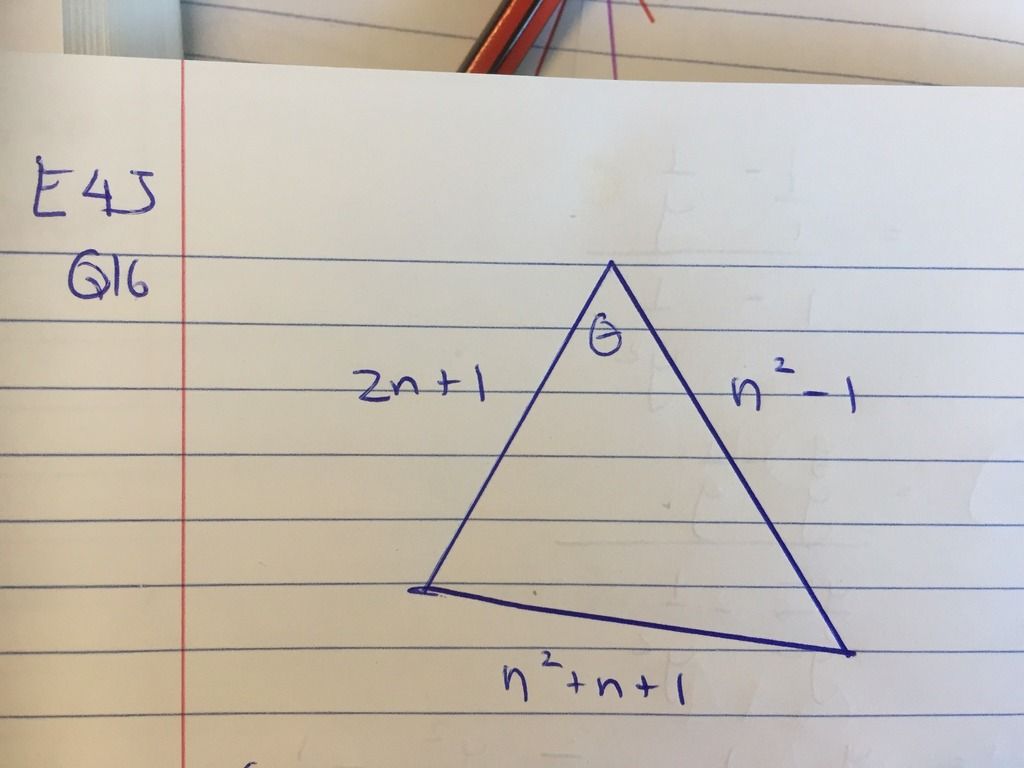 E4J
Q16
θ
2n+1
n²-1
n²+n+1